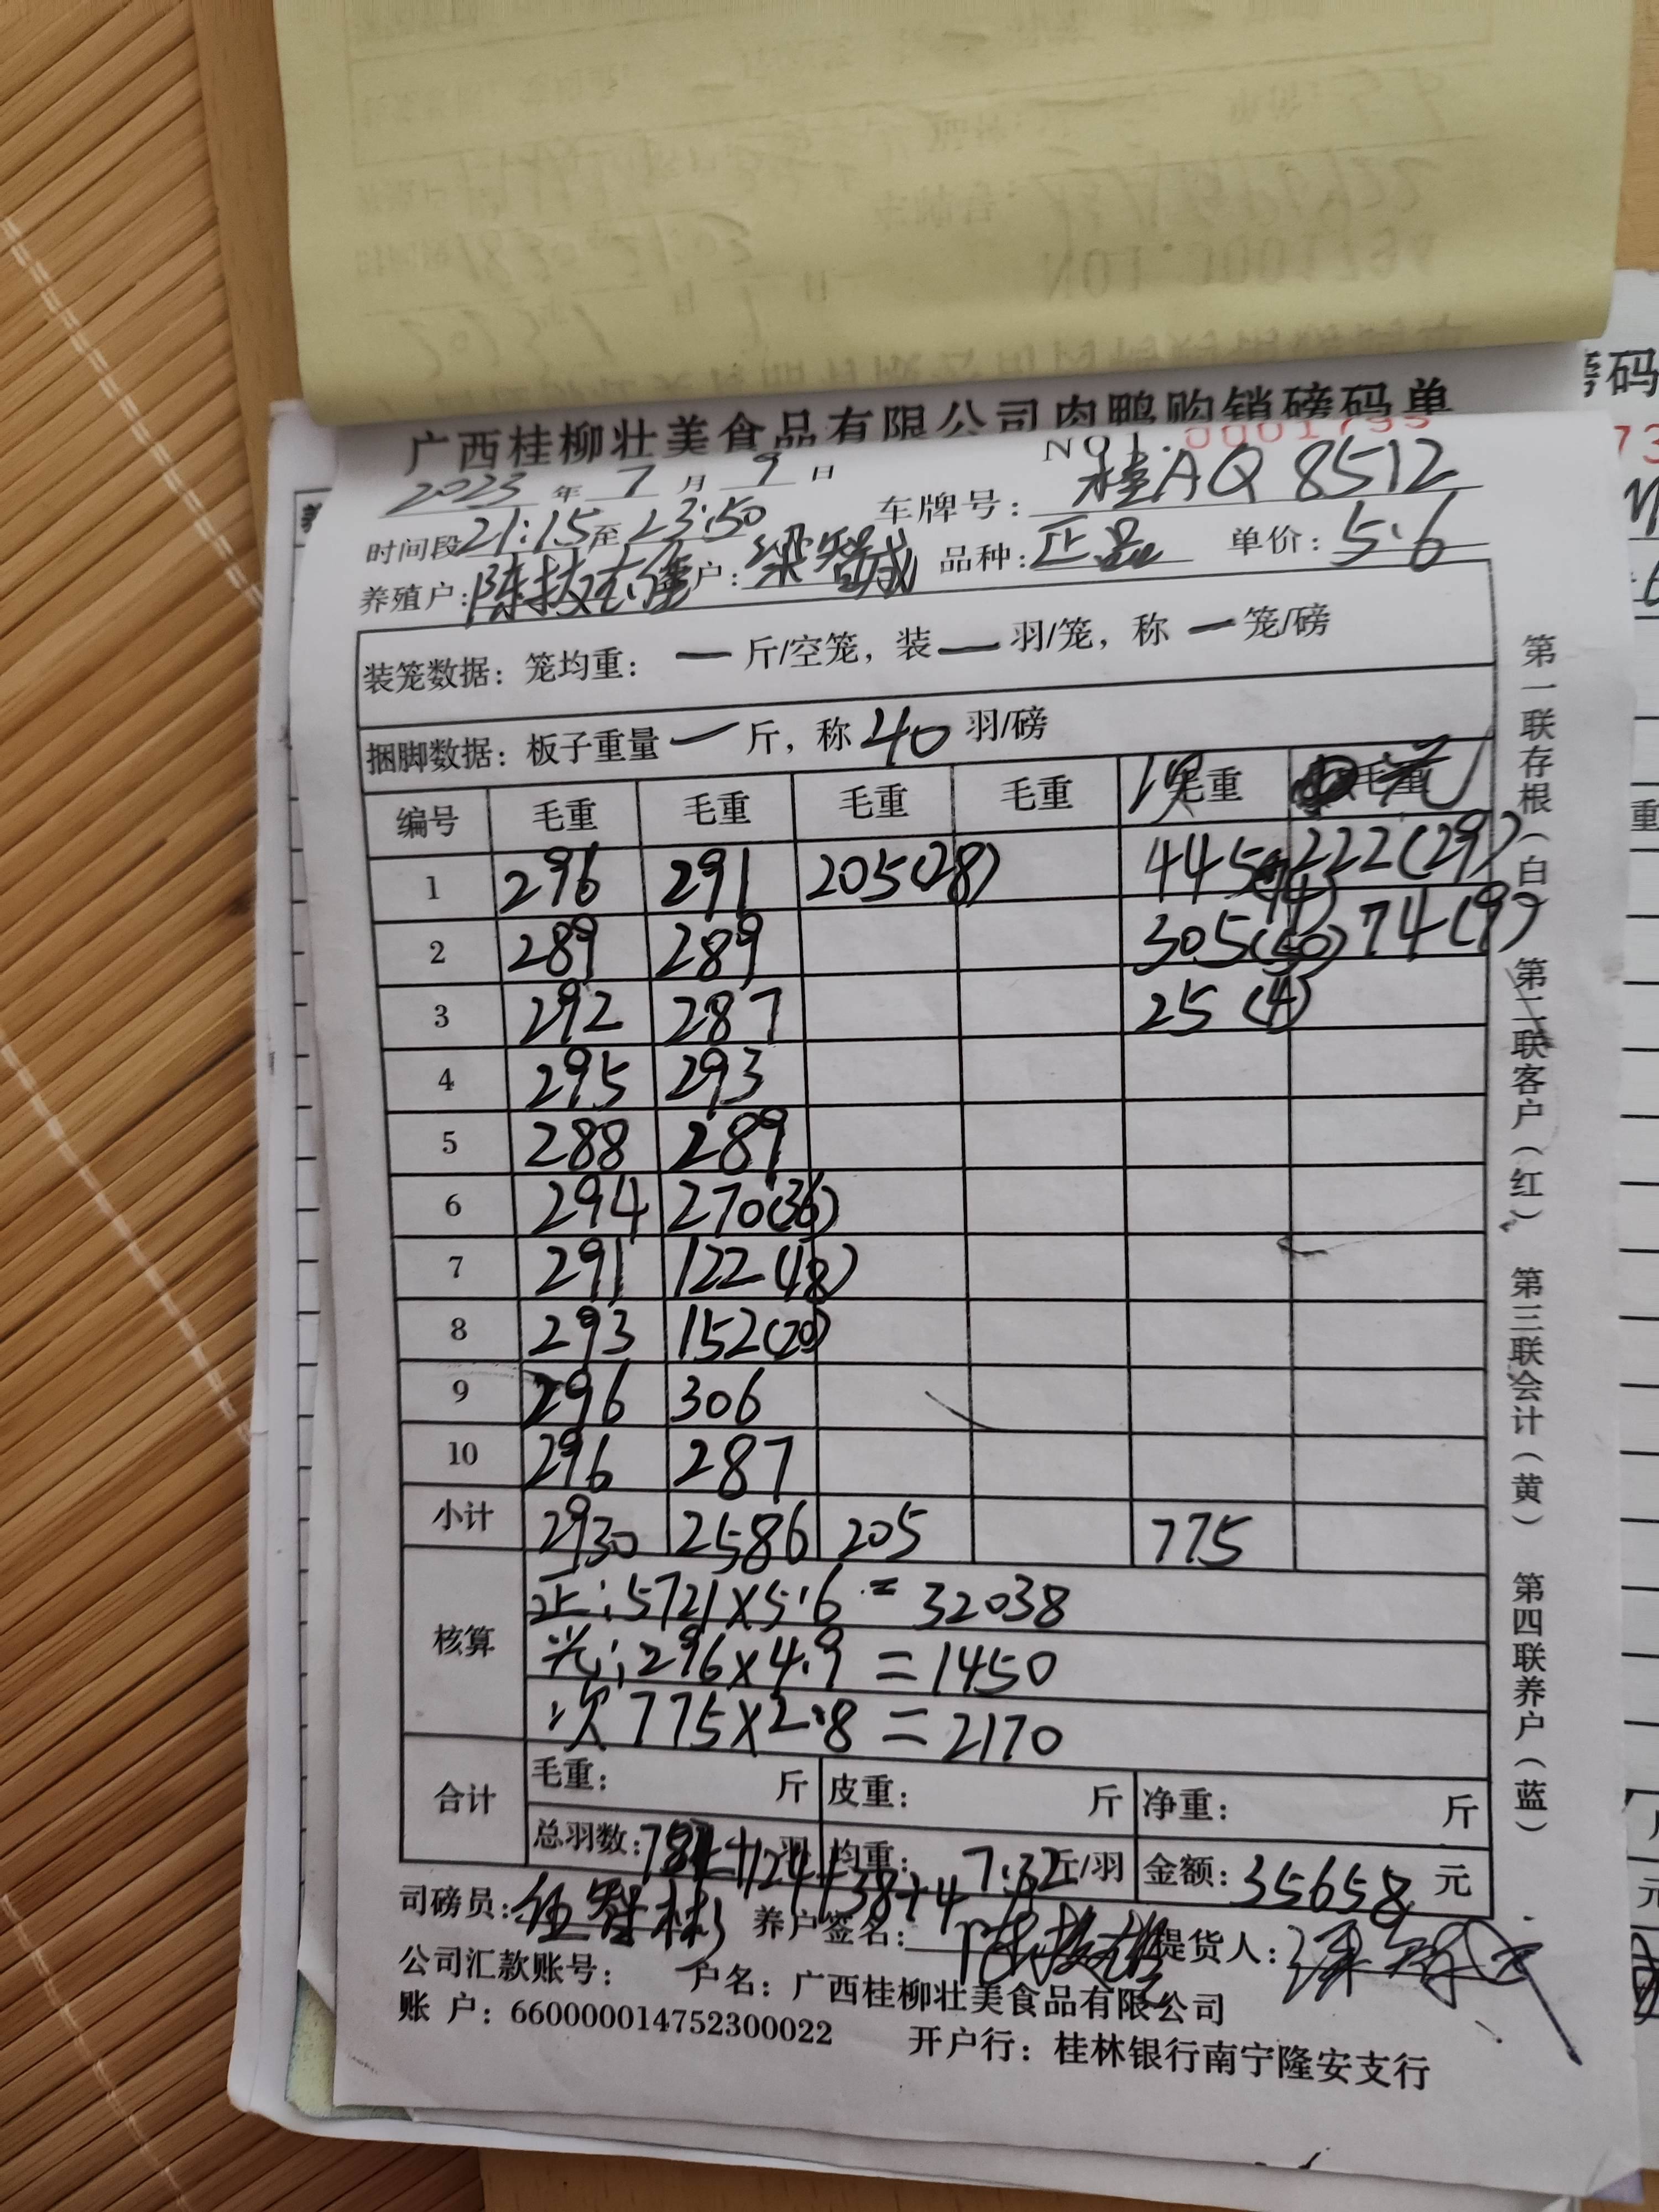 广西桂柳壮美食品有限公司肉鸭购销磅码单
NO1.0001795
2023年7月9日 车牌号：桂AQ8512
时间段21:15至23:50
养殖户：陈扶 户：梁智诚 品种：正品 单价：5.6
装笼数据：笼均重：一斤/空笼，装一羽/笼，称一笼/磅
捆脚数据：板子重量一斤，称40羽/磅
编号 毛重 毛重 毛重 毛重 次毛重 毛重
1 296 291 205(28) 445 222(29)
2 289 289 305(50) 74(9)
3 292 287 25(4)
4 295 293
5 288 289
6 294 270(36)
7 291 122(18)
8 293 152(20)
9 296 306
10 296 287
小计 2930 2586 205 775
核算 正：5721×5.6=32038
光：296×4.9=1450
次775×2.8=2170
合计 毛重： 斤 皮重： 斤 净重： 斤
总羽数： 羽 均重：7.32斤/羽 金额：35658元
司磅员： 养户签名： 提货人：
公司汇款账号： 户名：广西桂柳壮美食品有限公司
账 户：660000014752300022 开户行：桂林银行南宁隆安支行
第一联存根（白） 第二联客户（红） 第三联会计（黄） 第四联养户（蓝）
磅码
73